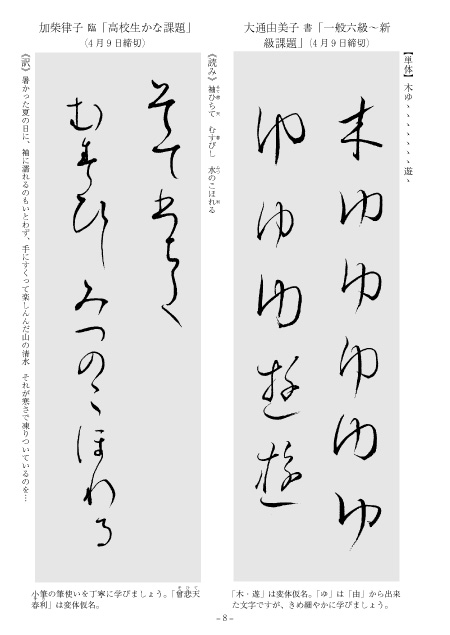 大通由美子 書「一般六級～新
級課題」(4月9日締切)
【単体】木ゆ、、、、、、、遊、
ゆゆゆゆゆ
ゆゆゆ遊遊
「木・遊」は変体仮名。「ゆ」は「由」から出来
た文字ですが、きめ細やかに学びましょう。
加柴律子 臨「高校生かな課題」
(4月9日締切)
《読み》袖ひちて むすびし 水のこほれる
むすひし みつのこほれる
《訳》暑かった夏の日に、袖に濡れるのもいとわず、手にすくって楽しんんだ山の清水 それが寒さで凍りついているのを…
小筆の筆使いを丁寧に学びましょう。「曾悲天
春利」は変体仮名。
– 8 –